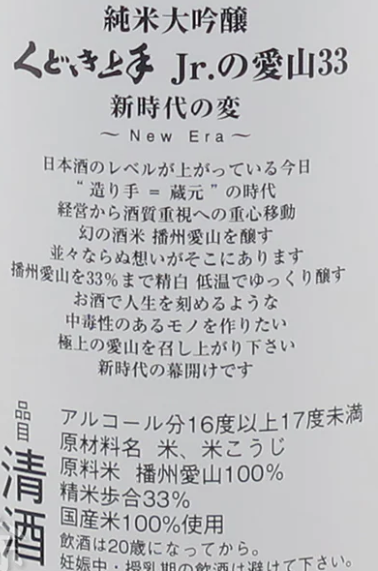 純米大吟醸
くどき上手 Jr.の愛山33
新時代の変
～ New Era ～
日本酒のレベルが上がっている今日
“ 造り手 = 蔵元 ” の時代
経営から酒質重視への重心移動
幻の酒米 播州愛山を醸す
並々ならぬ想いがそこにあります
播州愛山を33%まで精白 低温でゆっくり醸す
お酒で人生を刻めるような
中毒性のあるモノを作りたい
極上の愛山を召し上がり下さい
新時代の幕開けです
品目
清酒
アルコール分16度以上17度未満
原材料名 米、米こうじ
原料米 播州愛山100%
精米歩合33%
国産米100%使用
飲酒は20歳になってから。
妊娠中・授乳期の飲酒は避けて下さい。